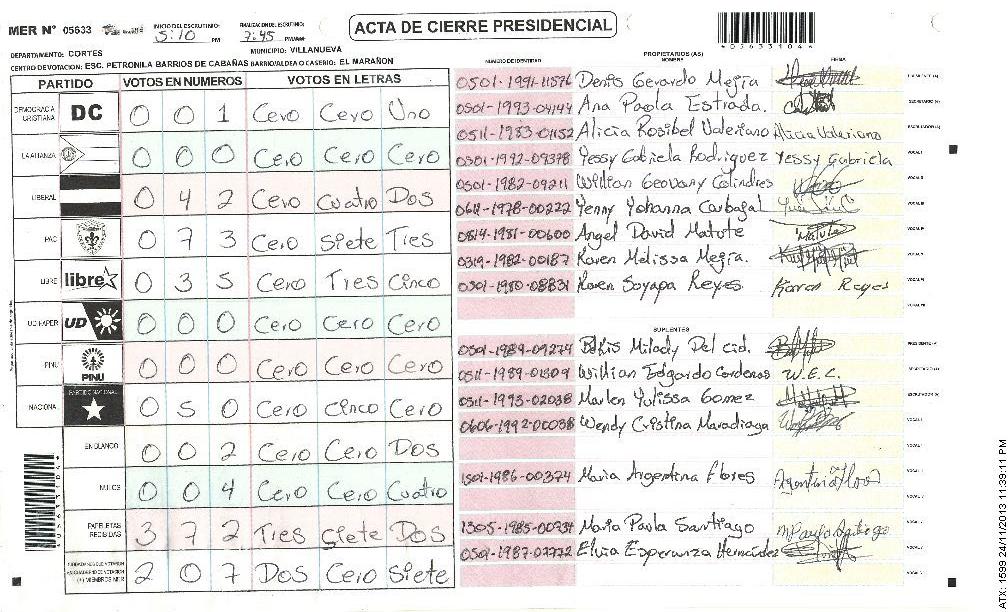 MER Nº 05633 INICIO DEL ESCRUTINIO: 5:10 PM FINALIZACION DEL ESCRUTINIO: 7:45 PM ACTA DE CIERRE PRESIDENCIAL
*05633104*
DEPARTAMENTO: CORTES MUNICIPIO: VILLANUEVA
CENTRO DE VOTACION: ESC. PETRONILA BARRIOS DE CABAÑAS BARRIO/ALDEA O CASERIO: EL MARAÑON
PARTIDO VOTOS EN NUMEROS VOTOS EN LETRAS
DEMOCRACIA CRISTIANA DC 0 0 1 Cero Cero Uno
LA ALIANZA 0 0 0 Cero Cero Cero
LIBERAL 0 4 2 Cero Cuatro Dos
PAC 0 7 3 Cero Siete Tres
LIBRE libre 0 3 5 Cero Tres Cinco
UD-FAPER UD 0 0 0 Cero Cero Cero
PINU PINU 0 0 0 Cero Cero Cero
NACIONAL PARTIDO NACIONAL 0 5 0 Cero Cinco Cero
EN BLANCO 0 0 2 Cero Cero Dos
NULOS 0 0 4 Cero Cero Cuatro
PAPELETAS RECIBIDAS 3 7 2 Tres Siete Dos
2 0 7 Dos Cero Siete
*05633104*
PROPIETARIOS (AS)
NUMERO DE IDENTIDAD NOMBRE FIRMA
0501-1991-11576 Denis Gerardo Mejia
0501-1993-04144 Ana Paola Estrada.
0511-1983-01152 Alicia Rosibel Valeriano Alicia Valeriano
0501-1992-09378 Yessy Gabriela Rodriguez Yessy Gabriela
0501-1982-09211 Willian Geovany Colindres
0611-1978-00222 Yenny Yohanna Carbajal
0814-1981-00600 Angel David Matute Matute
0319-1982-00187 Karen Melissa Mejia.
0501-1980-08831 Karen Soyapa Reyes Karen Reyes
SUPLENTES
0501-1989-09274 Belkis Milady Del cid.
0511-1989-01309 Willian Edgardo Cardenas W.E.C.
0511-1993-02038 Marlen Yulissa Gomez
0606-1992-00038 Wendy Cristina Maradiaga
1501-1986-00374 Maria Argentina Flores
1305-1985-00234 Maria Paula Santiago
0501-1987-02772 Elvia Esperanza Hernández
ATX: 1599 24/11/2013 11:39:11 PM